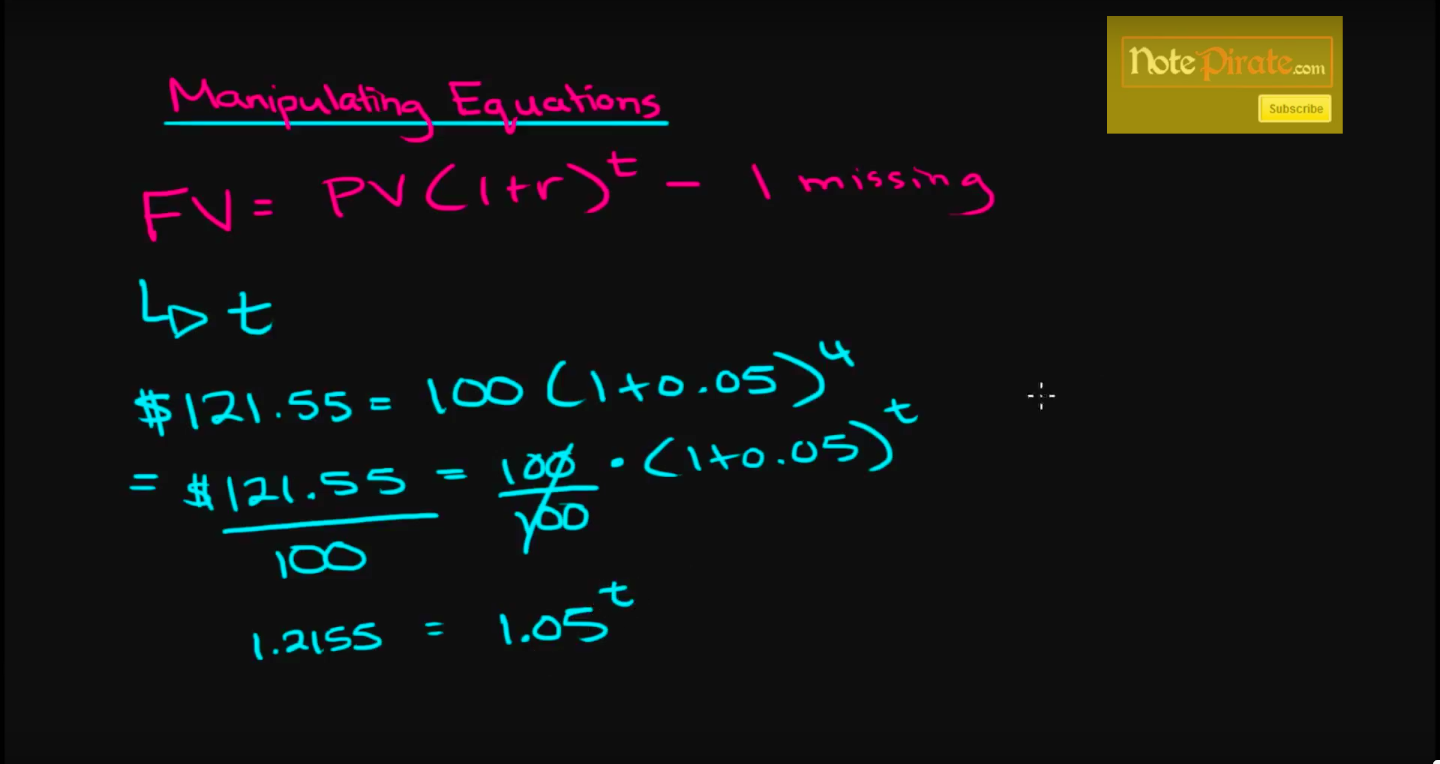 NotePirate.com
Subscribe
Manipulating Equations
FV = PV(1+r)^t - 1 missing
↳ t
$121.55 = 100 (1+0.05)^4
= $121.55/100 = 100/100 · (1+0.05)^t
1.2155 = 1.05^t